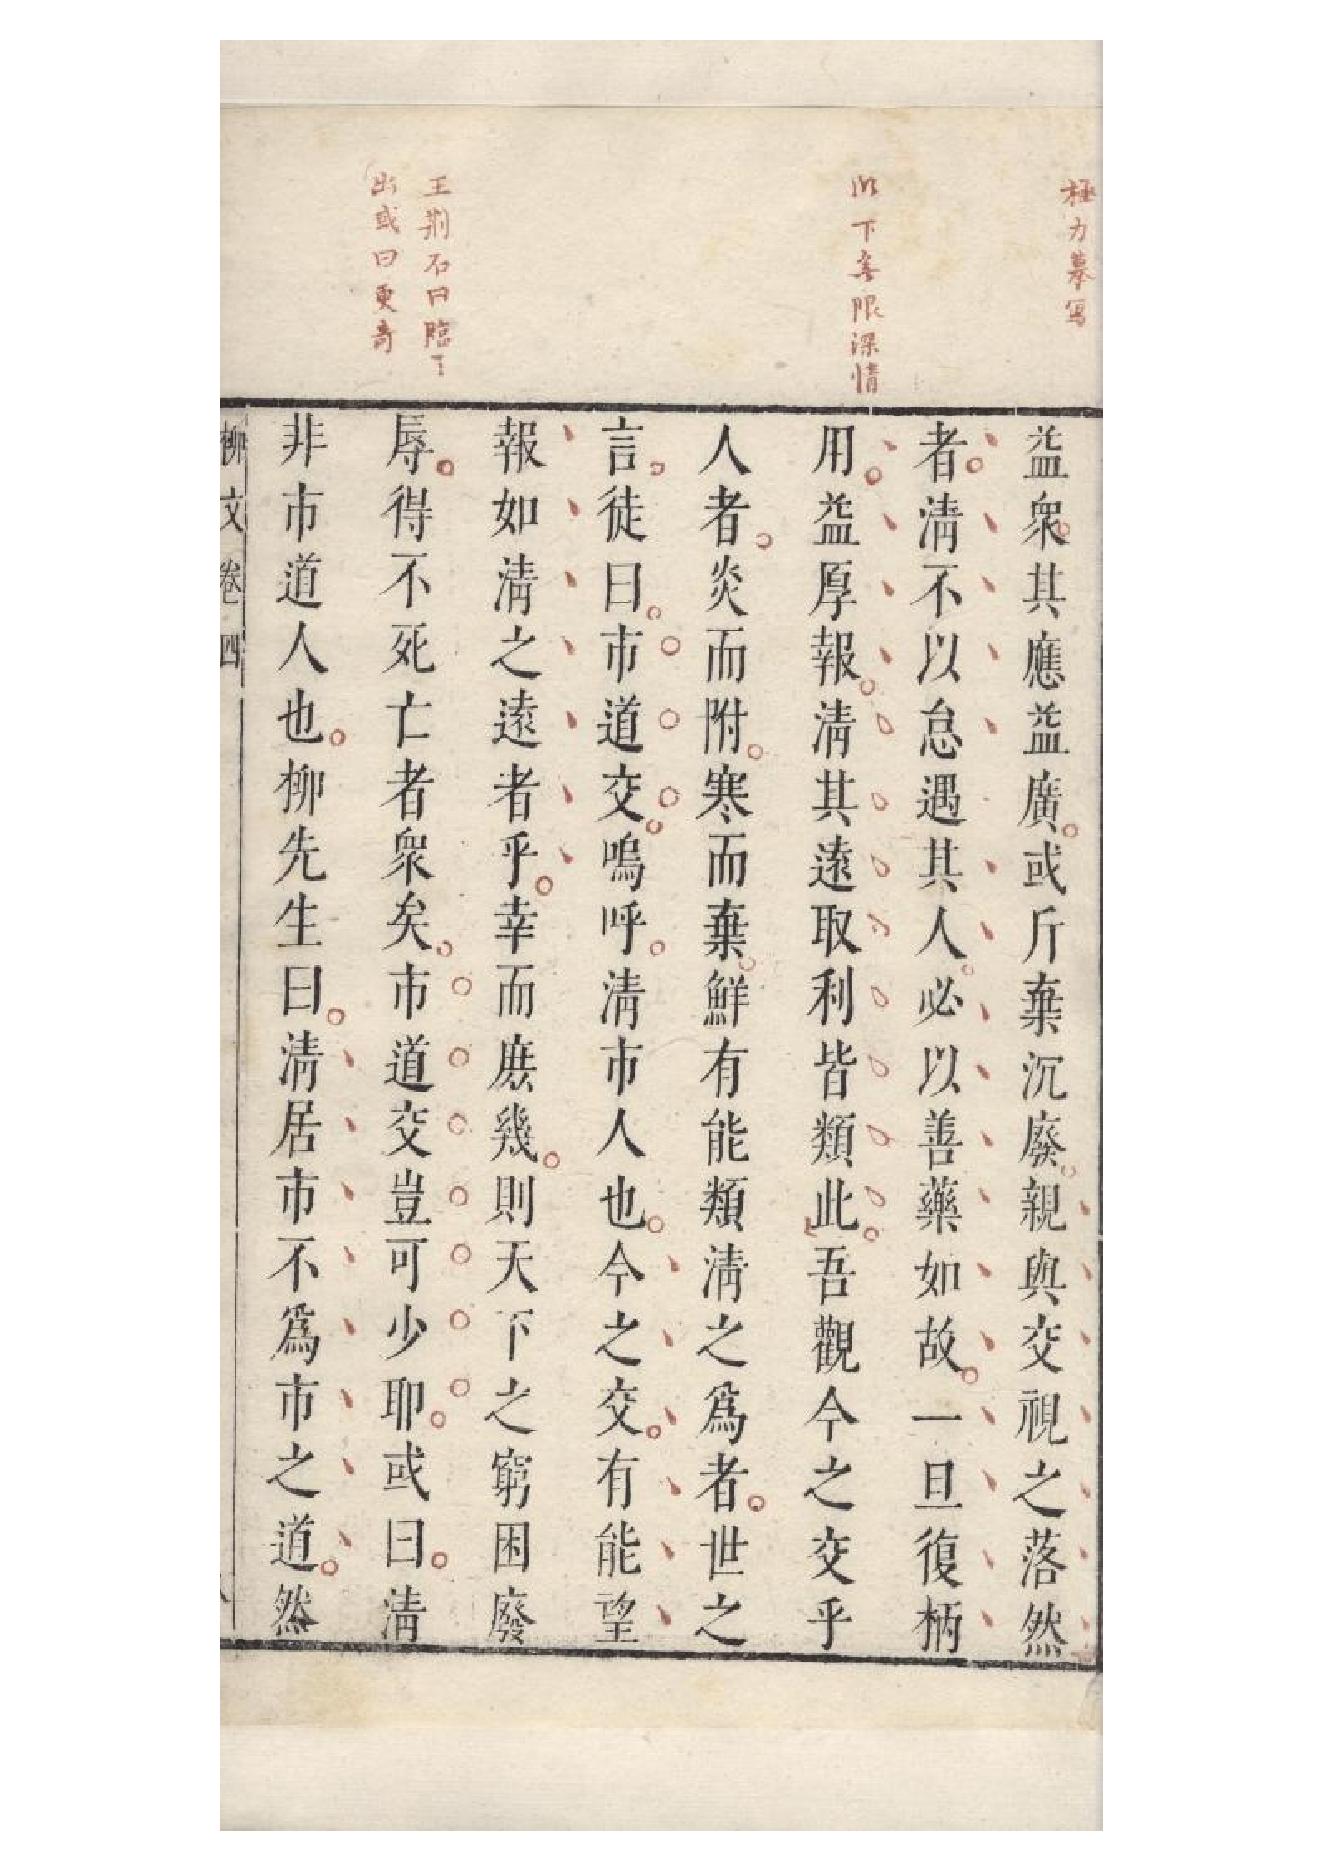 極力摹寫
以下無限深情
王荊石曰臨了
出或曰更奇
益衆其應益廣或斥棄沉廢親與交視之落然
者清不以怠遇其人必以善藥如故一旦復柄
用益厚報清其遠取利皆類此吾觀今之交乎
人者炎而附寒而棄鮮有能類清之爲者世之
言徒曰市道交嗚呼清市人也今之交有能望
報如清之遠者乎幸而庶幾則天下之窮困廢
辱得不死亡者衆矣市道交豈可少耶或曰清
非市道人也柳先生曰清居市不爲市之道然
柳文卷四